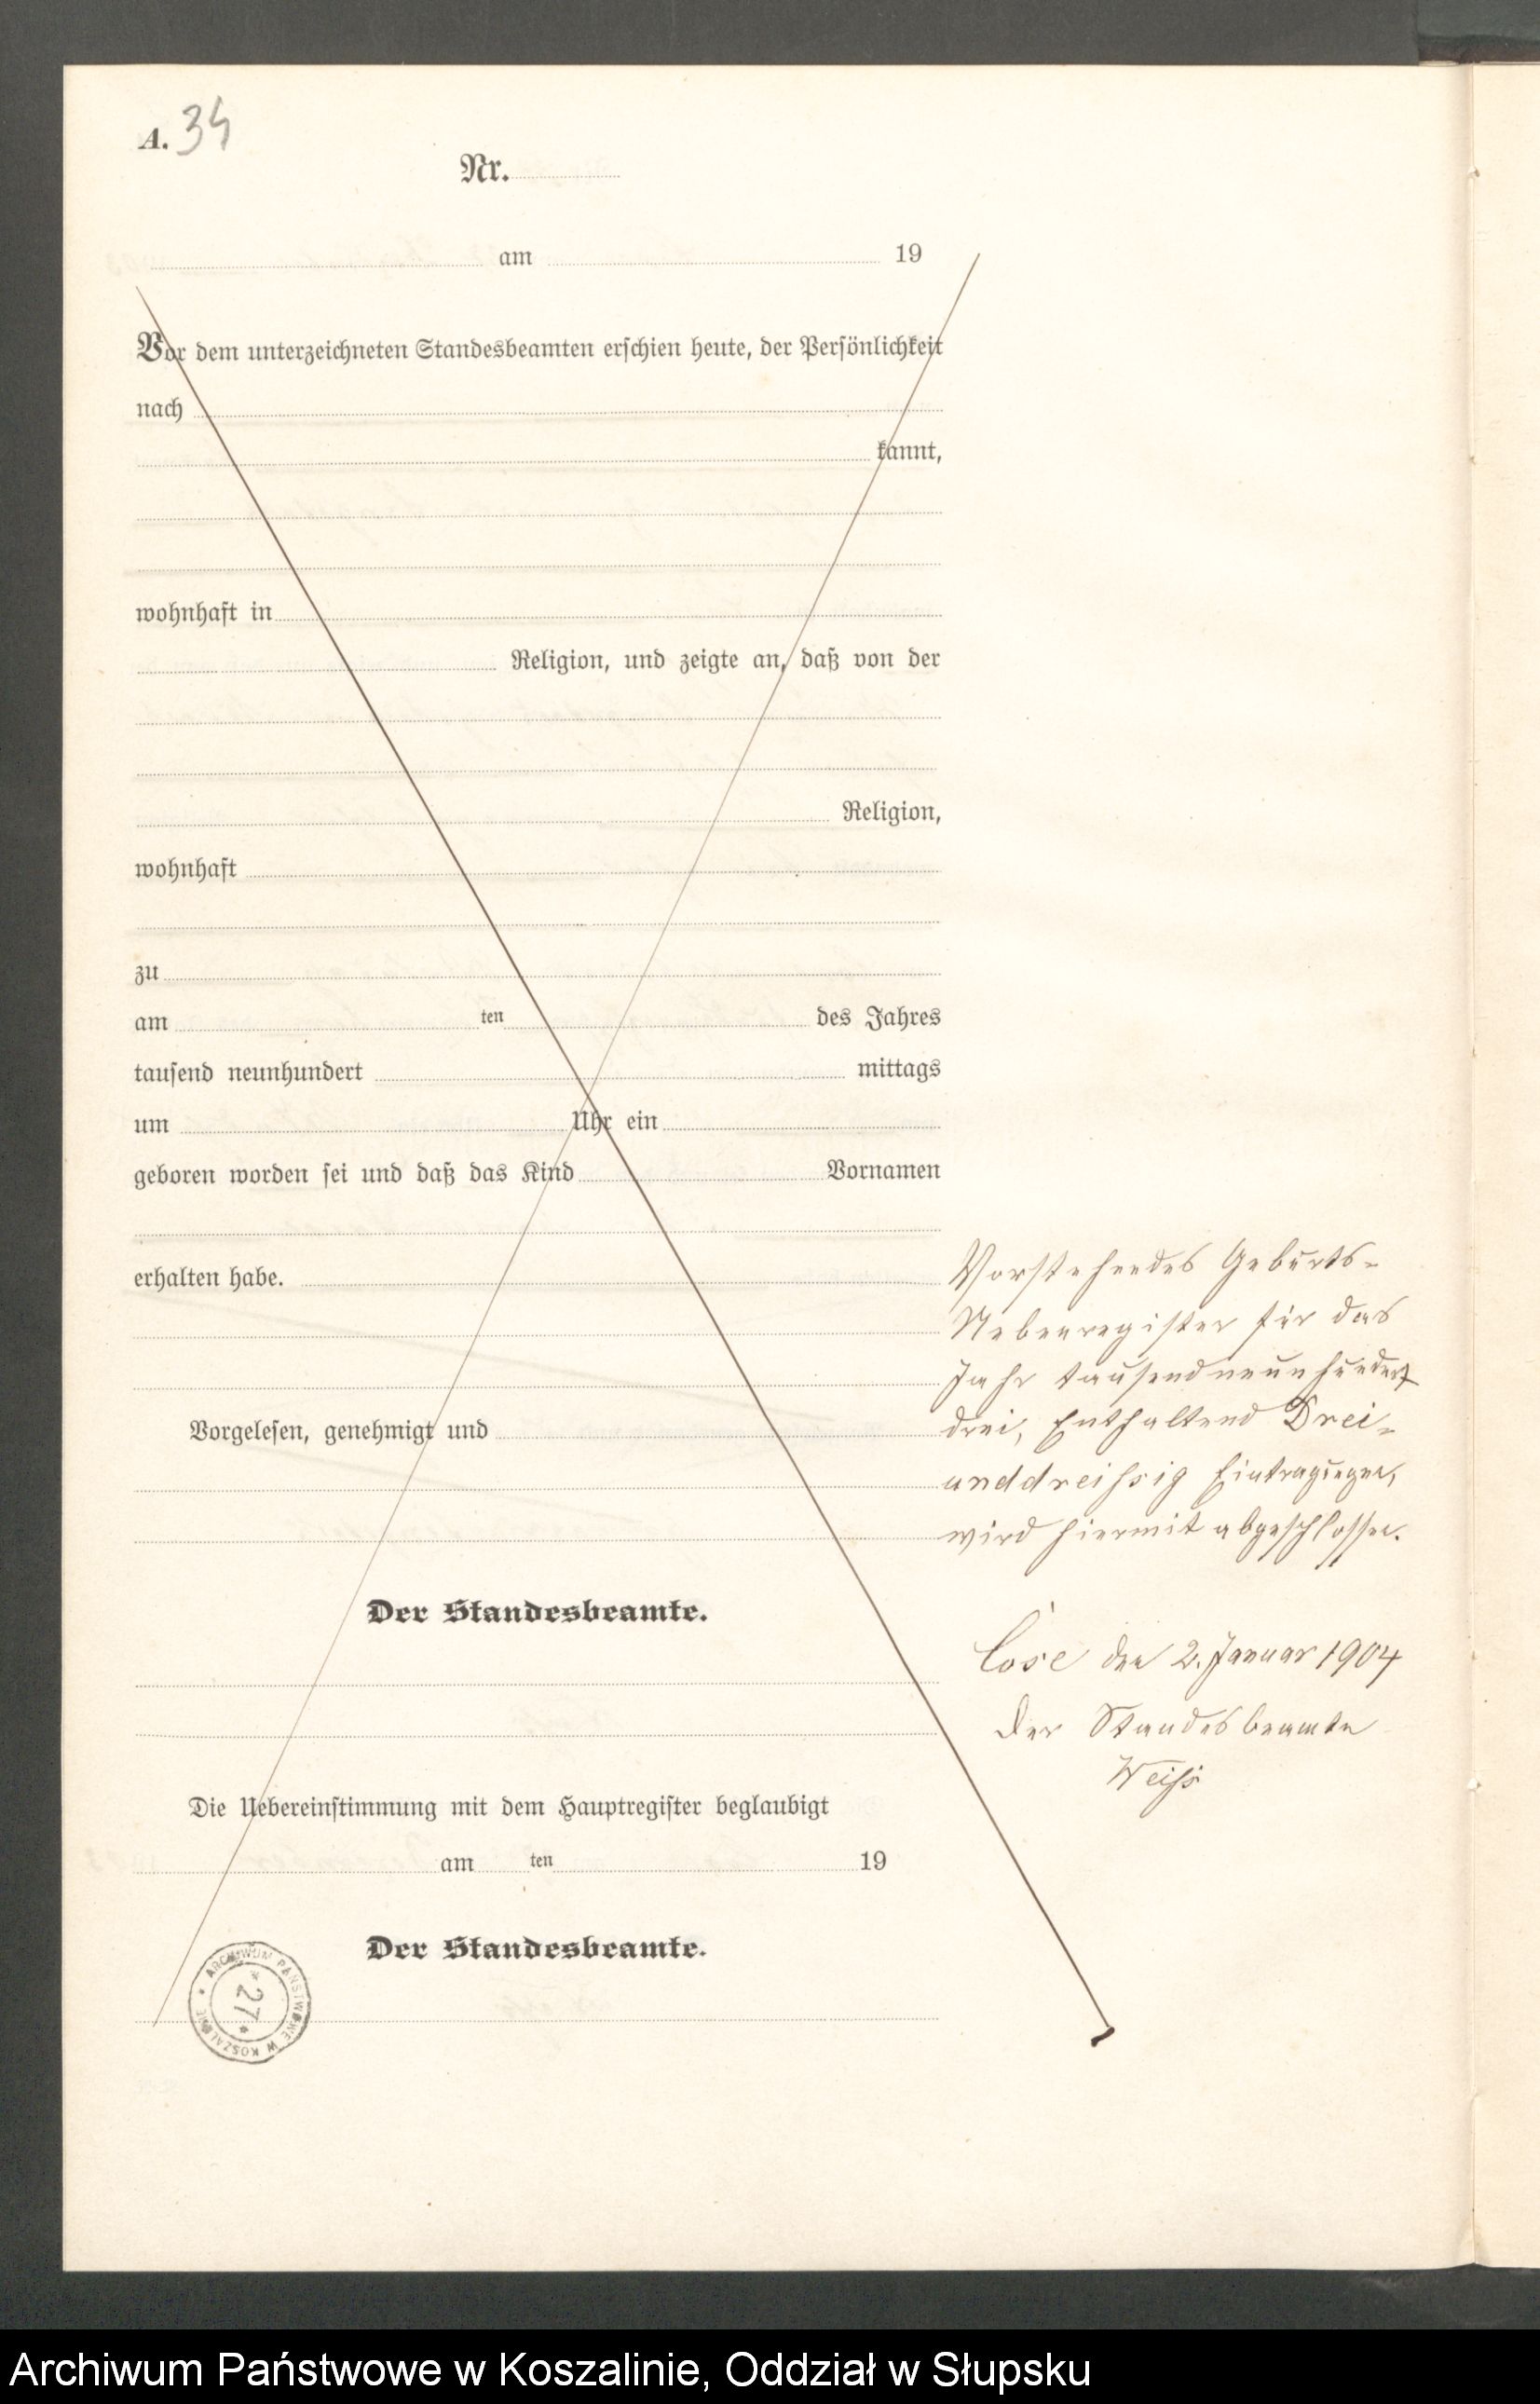 A. 34
Nr.
am 19
Vor dem unterzeichneten Standesbeamten erschien heute, der Persönlichkeit
nach
kannt,
wohnhaft in
Religion, und zeigte an, daß von der
Religion,
wohnhaft
zu
am ten des Jahres
tausend neunhundert mittags
um Uhr ein
geboren worden sei und daß das Kind Vornamen
erhalten habe.
Vorgelesen, genehmigt und
Der Standesbeamte.
Die Uebereinstimmung mit dem Hauptregister beglaubigt
am ten 19
Der Standesbeamte.
ARCHIWUM PAŃSTWOWE W KOSZALINIE * 27 *
Vorstehendes Geburts-
Nebenregister für das
Jahr tausendneunhundert
drei, enthaltend Drei-
unddreissig Eintragungen,
wird hiermit abgeschlossen.
Cose den 2. Januar 1904
Der Standesbeamte
Weiß
Archiwum Państwowe w Koszalinie, Oddział w Słupsku